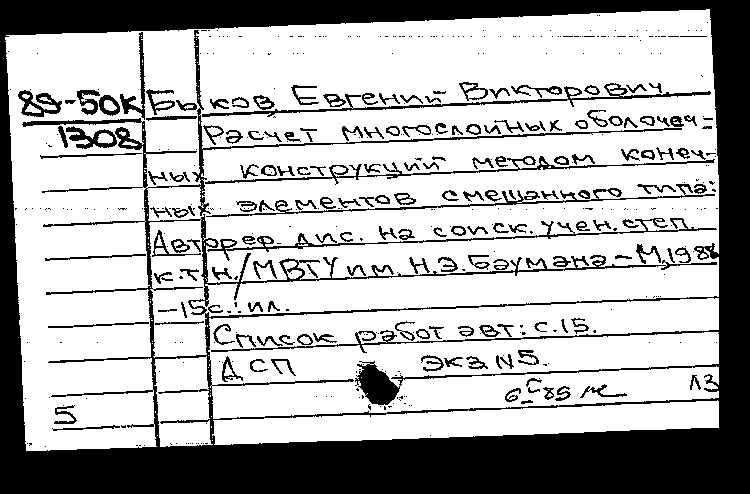 89-50К Быков, Евгений Викторович.
1308 Расчет многослойных оболочеч-
ных конструкций методом конеч-
ных элементов смешанного типа:
Автореф. дис. на соиск. учен. степ.
к.т.н./МВТУ им. Н.Э.Баумана.-М,1988
-15с.:ил.
Список работ авт: с.15.
ДСП экз N5.
89
5